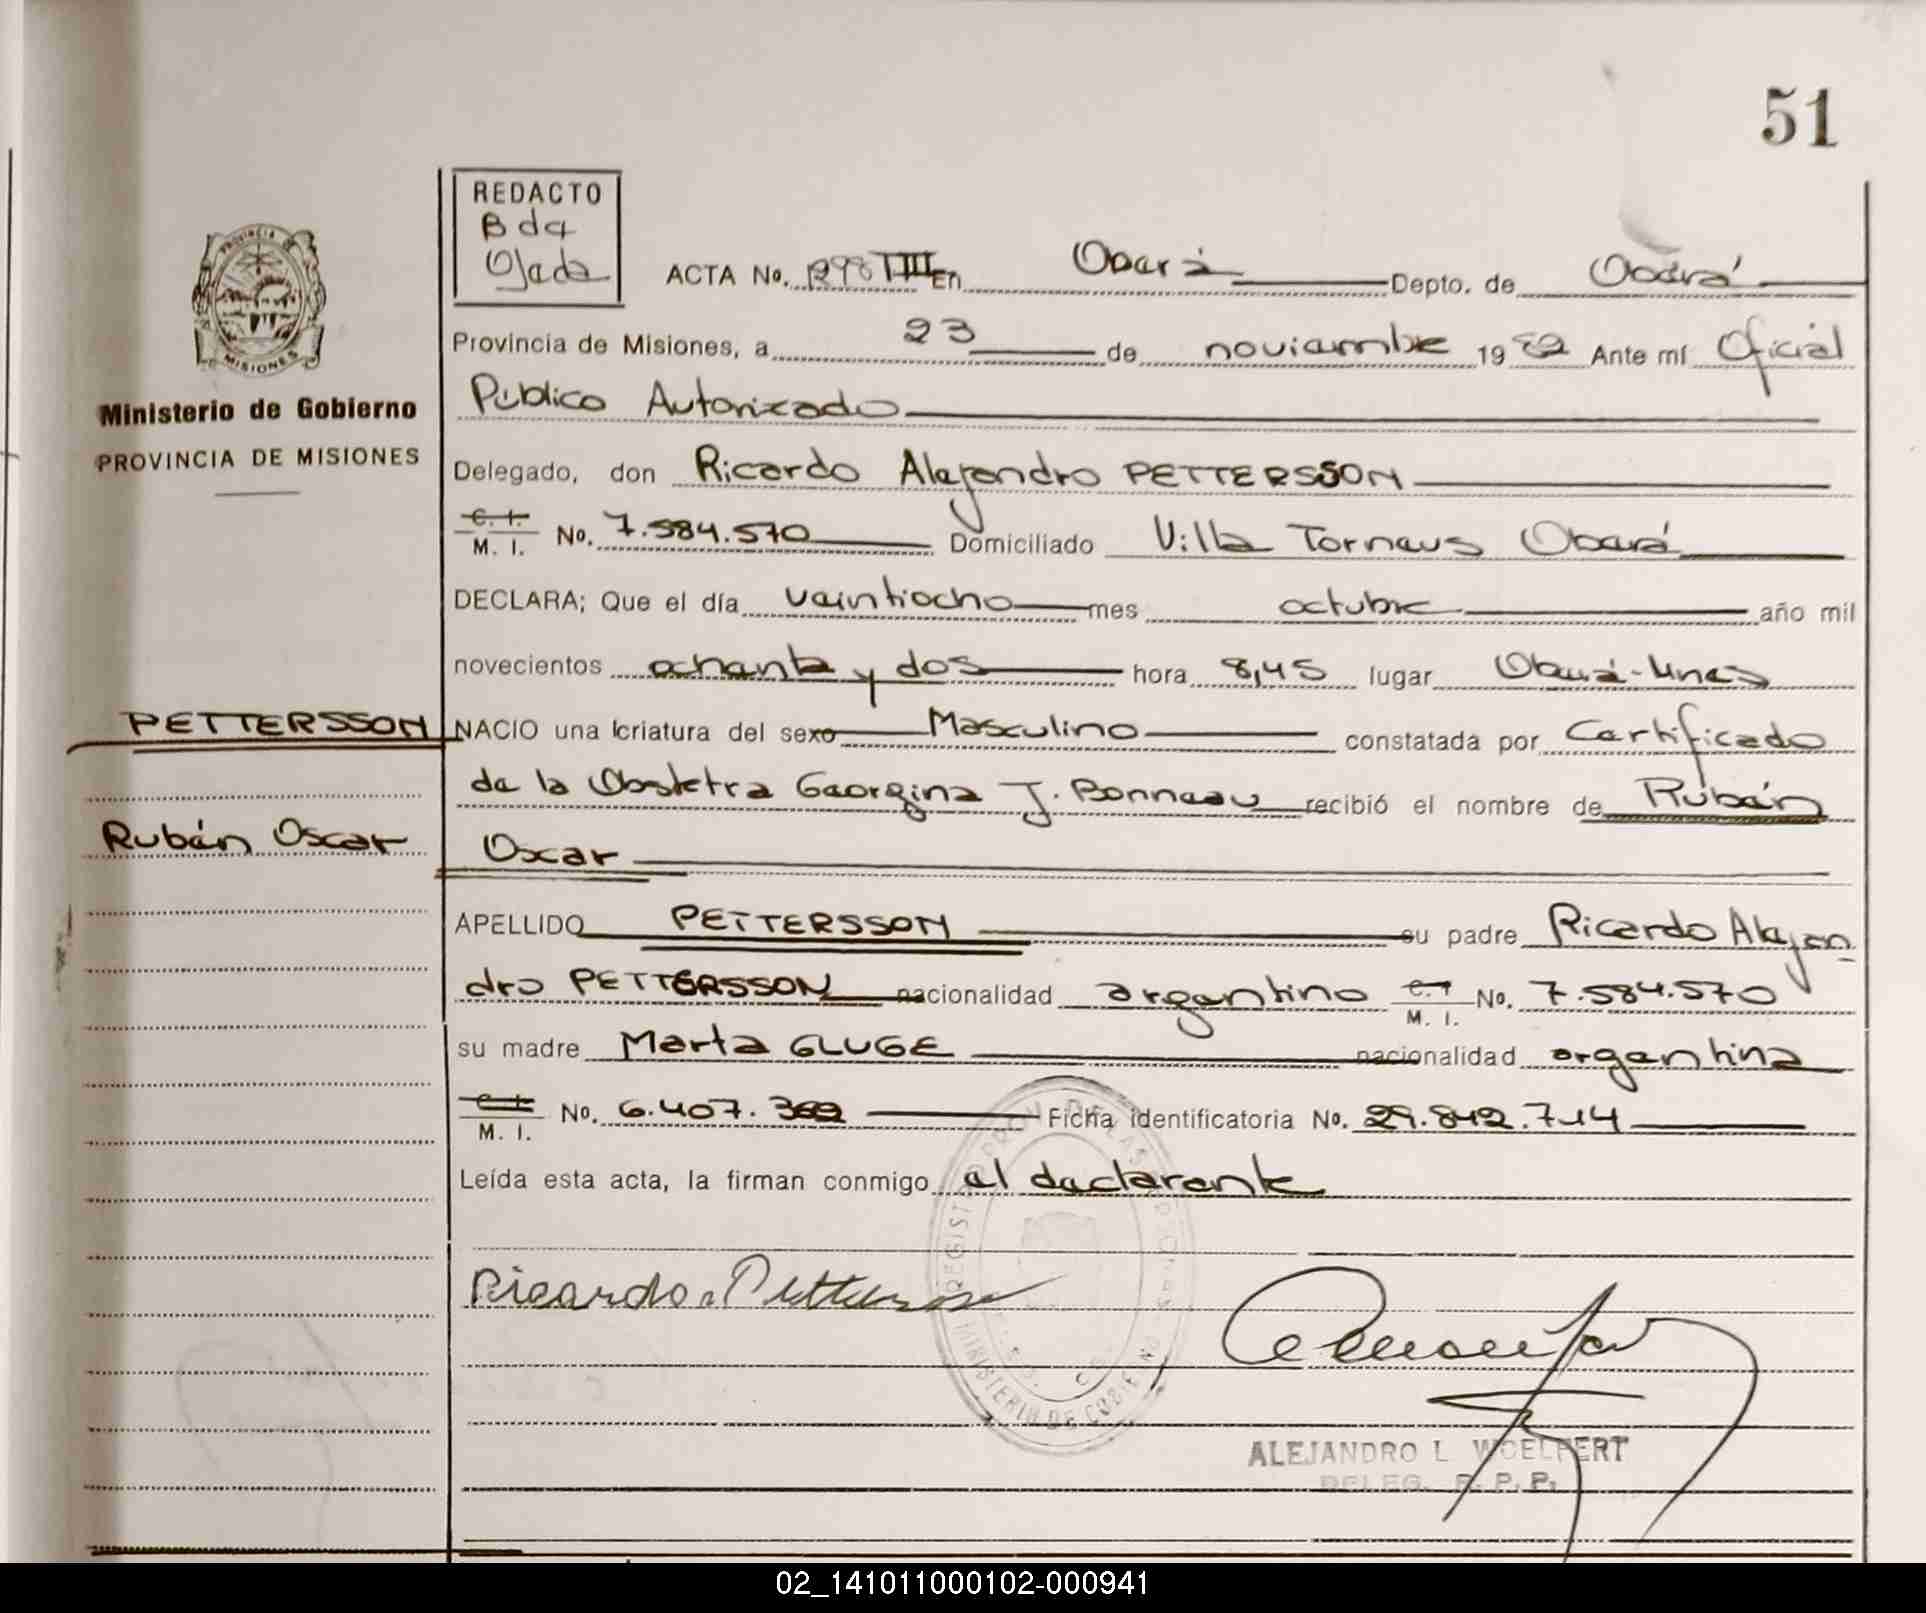 51
REDACTO
Bda
Ojeda
PROVINCIA DE
MISIONES
Ministerio de Gobierno
PROVINCIA DE MISIONES
ACTA No. 1298 TIII En Oberá Depto. de Oberá
Provincia de Misiones, a 23 de noviembre 1982 Ante mí Oficial
Público Autorizado
Delegado, don Ricardo Alejandro PETTERSSON
C. I. M. I. No. 7.584.570 Domiciliado Villa Torneus Oberá
DECLARA; Que el día veintiocho mes octubre año mil
novecientos ochenta y dos hora 8,45 lugar Oberá-Mnes
PETTERSSON
NACIO una criatura del sexo Masculino constatada por Certificado
de la Obstetra Georgina J. Bonneau recibió el nombre de Rubén
Rubén Oscar
Oscar
APELLIDO PETTERSSON su padre Ricardo Alejan
dro PETTERSSON nacionalidad argentino C. I. M. I. No. 7.584.570
su madre Marta GLUGE nacionalidad argentina
C. I. M. I. No. 6.407.362 Ficha identificatoria No. 29.842.714
Leída esta acta, la firman conmigo el declarante
Ricardo a Pettersson
MINISTERIO DE GOBIERNO
ALEJANDRO L. WOELFERT
DELEG. R. P. P.
02_141011000102-000941